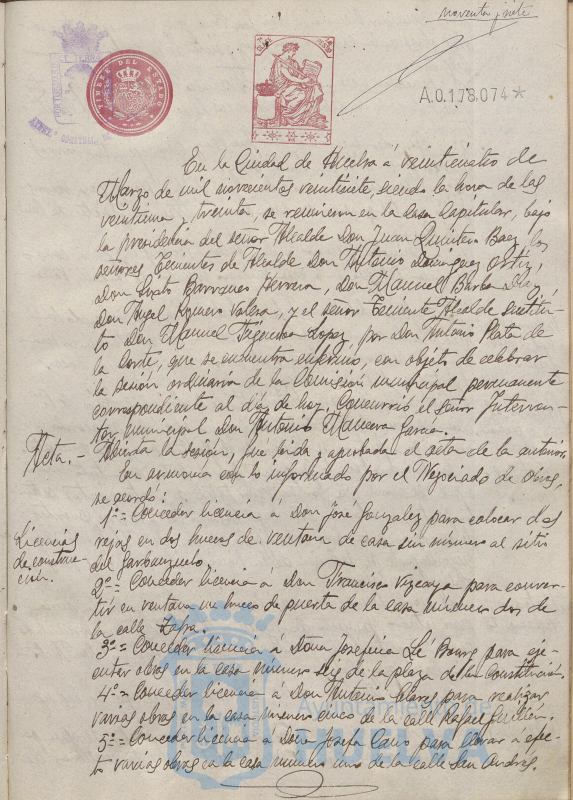 noventa y siete
TIMBRE DEL ESTADO
A.0.178.074*
En la Ciudad de Huelva á veinticuatro de
Marzo de mil novecientos veintisiete, siendo la hora de las
veintiuna y treinta, se reunieron en la Casa Capitular, bajo
la presidencia del señor Alcalde Don Juan Quintero Baez los
señores Tenientes de Alcalde Don Antonio Dominguez Ortiz,
Don Sixto Barranco Herrera, Don Manuel Barba Diaz,
Don Angel Romero Valera, y el señor Teniente Alcalde sustitu-
to Don Manuel Figueroa Lopez, por Don Antonio Plata de
la Corte, que se encuentra enfermo, con objeto de celebrar
la sesión ordinaria de la Comisión municipal permanente
correspondiente al dia de hoy. Concurrió el señor Interven-
tor municipal Don Antonio Garcia.
Acta.- Abierta la sesión, fue leida y aprobada el acta de la anterior.
En armonia con lo informado por el Negociado de Obras,
se acordó:
Licencias
de construc-
ción.
1º= Conceder licencia á Don José Gonzalez para colocar dos
rejas en dos huecos de ventana de casa sin número al sitio
del Garbanzuelo.
2º= Conceder licencia á Don Francisco Vizcaya para conver-
tir en ventana un hueco de puerta de la casa número dos de
la calle Zafra.
3º= Conceder licencia á Doña Josefina Le Bourg para eje-
cutar obras en la casa número de la plaza de la Constitución.
4º= Conceder licencia á Don Antonio para realizar
varias obras en la casa número cinco de la calle Rafael Guillén.
5º= Conceder licencia á Doña Josefa Cano para llevar á efec-
to varias obras en la casa número uno de la calle San Andrés.
Ayuntamiento de
HUELVA